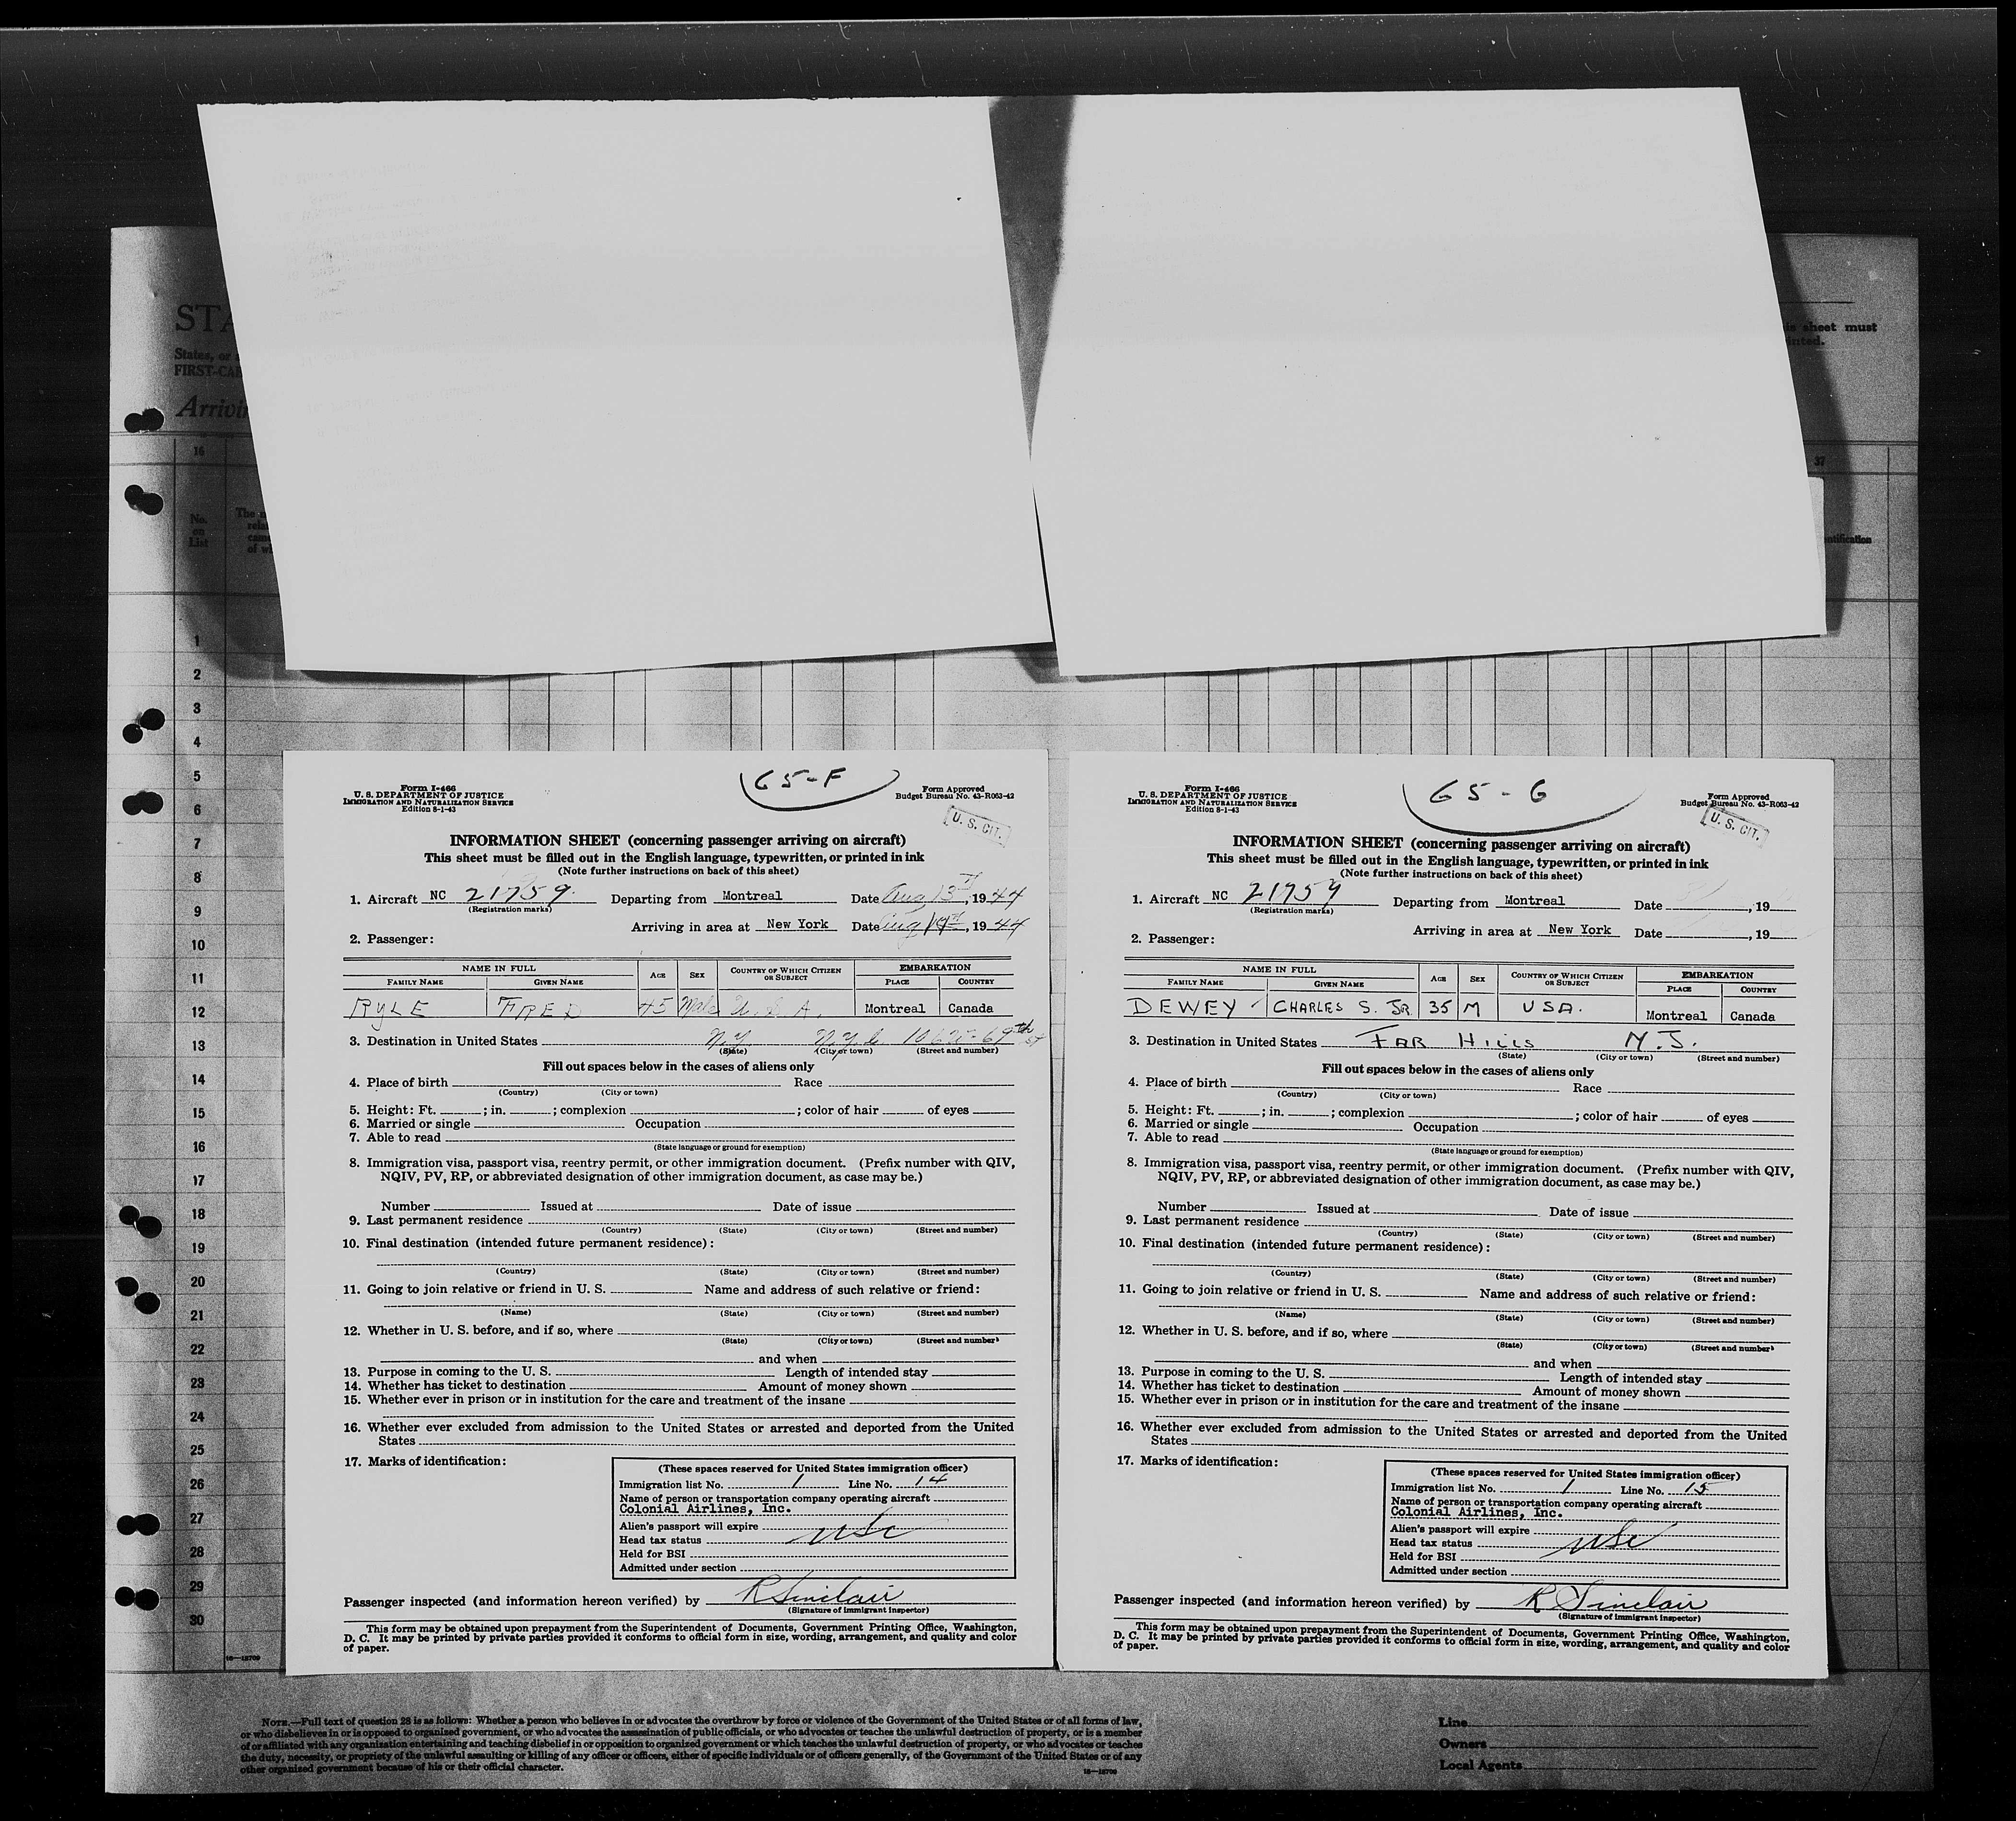 STA
States, or
FIRST-CAB
Arrivin
is sheet must
inted.
16
37
No.
on
List
The n
rela
came
of wh
entification
1
2
3
4
5
6
7
8
9
10
11
12
13
14
15
16
17
18
19
20
21
22
23
24
25
26
27
28
29
30
16—18709
65-F
Form I-466
U. S. DEPARTMENT OF JUSTICE
IMMIGRATION AND NATURALIZATION SERVICE
Edition 8-1-43
Form Approved
Budget Bureau No. 43-R063-42
U. S. CIT.
INFORMATION SHEET (concerning passenger arriving on aircraft)
This sheet must be filled out in the English language, typewritten, or printed in ink
(Note further instructions on back of this sheet)
1. Aircraft NC 21759. Departing from Montreal Date Aug 13th, 1944
(Registration marks)
Arriving in area at New York Date Aug, 1944
2. Passenger:
NAME IN FULL AGE SEX COUNTRY OF WHICH CITIZEN OR SUBJECT EMBARKATION
FAMILY NAME GIVEN NAME PLACE COUNTRY
RYLE FRED 45 Male U.S.A. Montreal Canada
3. Destination in United States N.Y. N.Y.C. 69th St
(State) (City or town) (Street and number)
Fill out spaces below in the cases of aliens only
4. Place of birth Race
(Country) (City or town)
5. Height: Ft. ; in. ; complexion ; color of hair of eyes
6. Married or single Occupation
7. Able to read
(State language or ground for exemption)
8. Immigration visa, passport visa, reentry permit, or other immigration document. (Prefix number with QIV,
NQIV, PV, RP, or abbreviated designation of other immigration document, as case may be.)
Number Issued at Date of issue
9. Last permanent residence
(Country) (State) (City or town) (Street and number)
10. Final destination (intended future permanent residence):
(Country) (State) (City or town) (Street and number)
11. Going to join relative or friend in U. S. Name and address of such relative or friend:
(Name) (State) (City or town) (Street and number)
12. Whether in U. S. before, and if so, where
(State) (City or town) (Street and number)
and when
13. Purpose in coming to the U. S. Length of intended stay
14. Whether has ticket to destination Amount of money shown
15. Whether ever in prison or in institution for the care and treatment of the insane
16. Whether ever excluded from admission to the United States or arrested and deported from the United
States
17. Marks of identification:
(These spaces reserved for United States immigration officer)
Immigration list No. 1 Line No. 14
Name of person or transportation company operating aircraft
Colonial Airlines, Inc.
Alien's passport will expire
Head tax status USC
Held for BSI
Admitted under section
Passenger inspected (and information hereon verified) by R Sinclair
(Signature of immigrant inspector)
This form may be obtained upon prepayment from the Superintendent of Documents, Government Printing Office, Washington,
D. C. It may be printed by private parties provided it conforms to official form in size, wording, arrangement, and quality and color
of paper.
65-G
Form I-466
U. S. DEPARTMENT OF JUSTICE
IMMIGRATION AND NATURALIZATION SERVICE
Edition 8-1-43
Form Approved
Budget Bureau No. 43-R063-42
U. S. CIT.
INFORMATION SHEET (concerning passenger arriving on aircraft)
This sheet must be filled out in the English language, typewritten, or printed in ink
(Note further instructions on back of this sheet)
1. Aircraft NC 21759 Departing from Montreal Date , 19
(Registration marks)
Arriving in area at New York Date , 19
2. Passenger:
NAME IN FULL AGE SEX COUNTRY OF WHICH CITIZEN OR SUBJECT EMBARKATION
FAMILY NAME GIVEN NAME PLACE COUNTRY
DEWEY CHARLES S. JR. 35 M USA. Montreal Canada
3. Destination in United States FAR HILLS N.J.
(State) (City or town) (Street and number)
Fill out spaces below in the cases of aliens only
4. Place of birth Race
(Country) (City or town)
5. Height: Ft. ; in. ; complexion ; color of hair of eyes
6. Married or single Occupation
7. Able to read
(State language or ground for exemption)
8. Immigration visa, passport visa, reentry permit, or other immigration document. (Prefix number with QIV,
NQIV, PV, RP, or abbreviated designation of other immigration document, as case may be.)
Number Issued at Date of issue
9. Last permanent residence
(Country) (State) (City or town) (Street and number)
10. Final destination (intended future permanent residence):
(Country) (State) (City or town) (Street and number)
11. Going to join relative or friend in U. S. Name and address of such relative or friend:
(Name) (State) (City or town) (Street and number)
12. Whether in U. S. before, and if so, where
(State) (City or town) (Street and number)
and when
13. Purpose in coming to the U. S. Length of intended stay
14. Whether has ticket to destination Amount of money shown
15. Whether ever in prison or in institution for the care and treatment of the insane
16. Whether ever excluded from admission to the United States or arrested and deported from the United
States
17. Marks of identification:
(These spaces reserved for United States immigration officer)
Immigration list No. 1 Line No. 15
Name of person or transportation company operating aircraft
Colonial Airlines, Inc.
Alien's passport will expire
Head tax status USC
Held for BSI
Admitted under section
Passenger inspected (and information hereon verified) by R Sinclair
(Signature of immigrant inspector)
This form may be obtained upon prepayment from the Superintendent of Documents, Government Printing Office, Washington,
D. C. It may be printed by private parties provided it conforms to official form in size, wording, arrangement, and quality and color
of paper.
NOTE.—Full text of question 28 is as follows: Whether a person who believes in or advocates the overthrow by force or violence of the Government of the United States or of all forms of law,
or who disbelieves in or is opposed to organized government, or who advocates the assassination of public officials, or who advocates or teaches the unlawful destruction of property, or is a member
of or affiliated with any organization entertaining and teaching disbelief in or opposition to organized government or which teaches the unlawful destruction of property, or who advocates or teaches
the duty, necessity, or propriety of the unlawful assaulting or killing of any officer or officers, either of specific individuals or of officers generally, of the Government of the United States or of any
other organized government because of his or their official character.
16—18709
Line
Owners
Local Agents